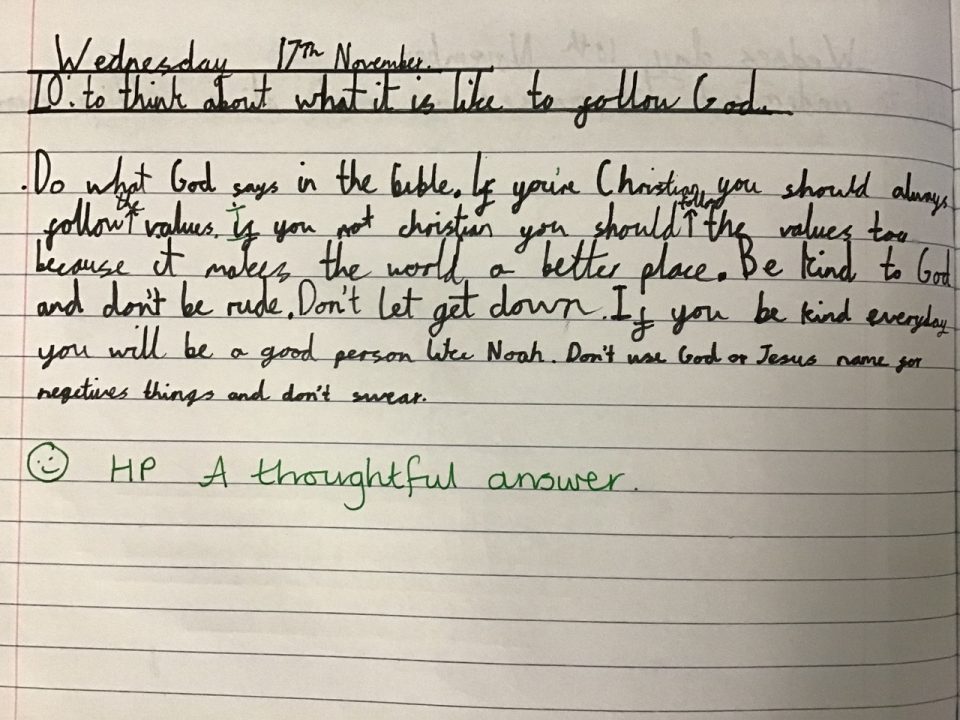 Wednesday 17th November.
IO: to think about what it is like to follow God.
.Do what God says in the bible. If you're Christian, you should always
follow the values. if you not christian you should follow the values too
because it makes the world a better place. Be kind to God
and don't be rude. Don't let get down. If you be kind everyday
you will be a good person like Noah. Don't use God or Jesus name for
negetives things and don't swear.
HP A thoughtful answer.